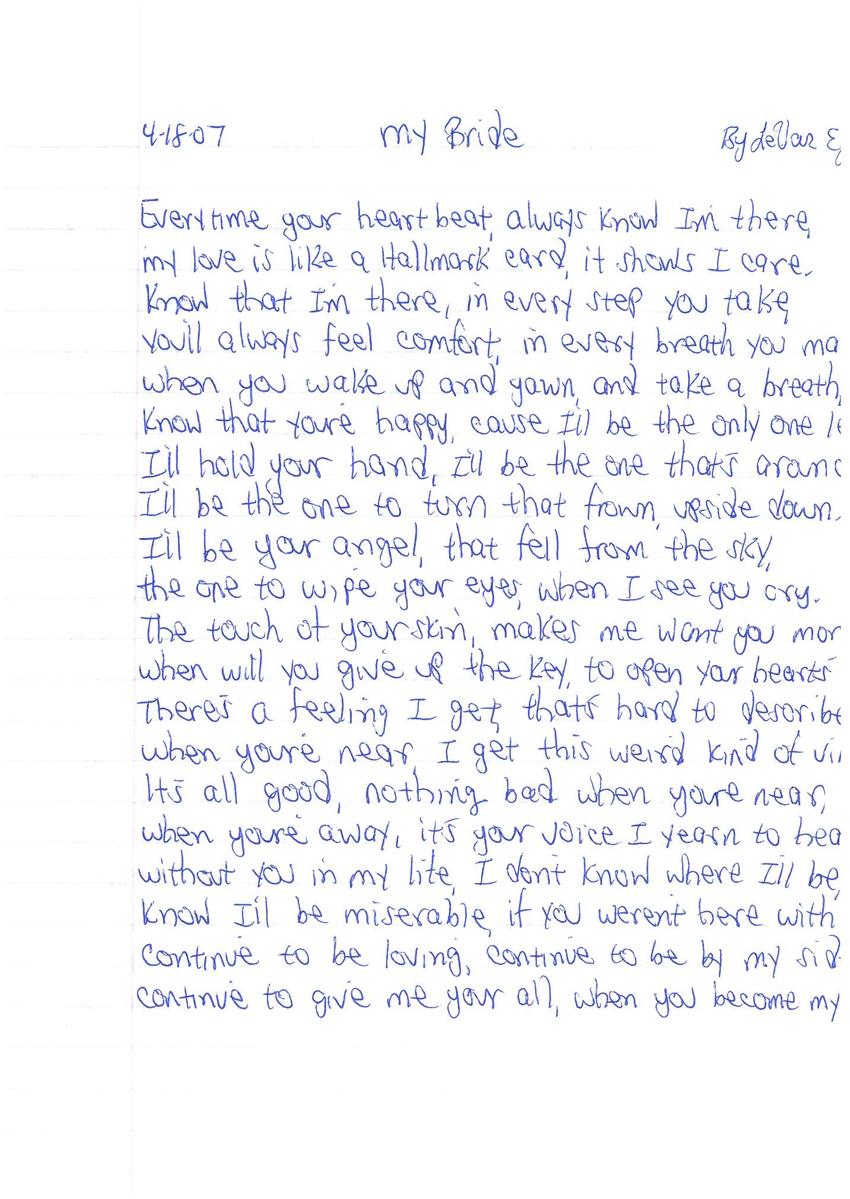 4-18-07 My Bride By LeVar E
Everytime your heart beat, always know I'm there,
my love is like a Hallmark card, it shows I care.
Know that I'm there, in every step you take,
You'll always feel comfort, in every breath you ma
when you wake up and yawn, and take a breath,
Know that you're happy, cause I'll be the only one le
I'll hold your hand, I'll be the one that's aroun
I'll be the one to turn that frown, upside down.
I'll be your angel, that fell from the sky,
the one to wipe your eyes, when I see you cry.
The touch of your skin, makes me want you mor
when will you give up the key, to open your hearts
There's a feeling I get, that's hard to describe
when you're near, I get this weird kind of vi
It's all good, nothing bad when you're near,
when you're away, it's your voice I yearn to hea
without you in my life, I don't know where I'll be,
Know I'll be miserable, if you weren't here with
continue to be loving, continue to be by my sid
continue to give me your all, when you become my